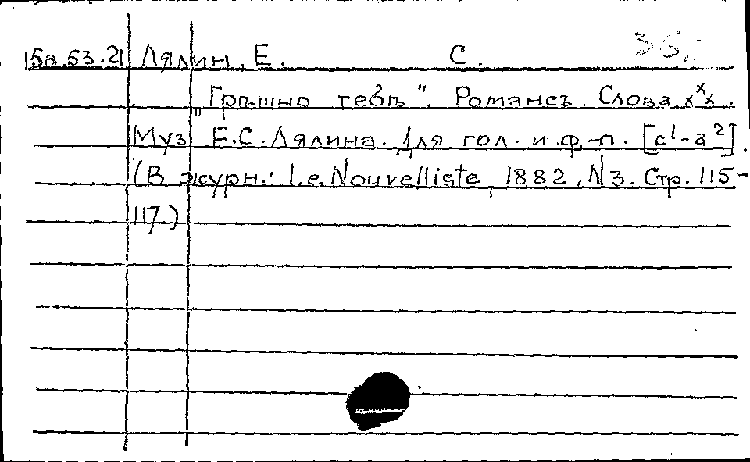 15а.53.21 Лялин, Е. С. 35.
„Грѣшно тебѣ“. Романсъ. Слова xˣx.
Муз Е.С.Лялина. Для гол. и ф.-п. [c¹-a²].
(В журн.: Le Nouvelliste, 1882, N3. Стр. 115-
117.)